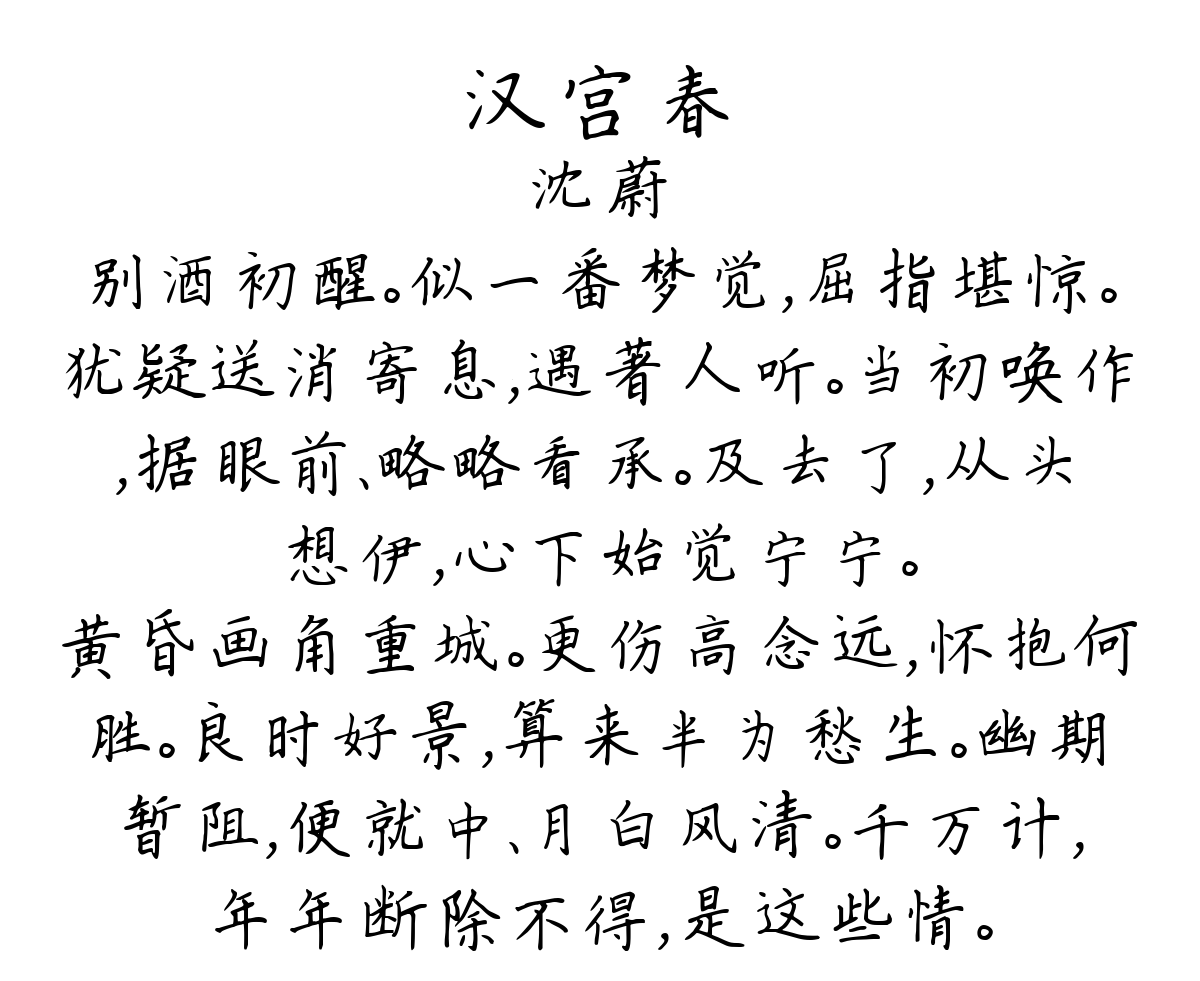 汉宫春
沈蔚
别酒初醒。似一番梦觉,屈指堪惊。
犹疑送消寄息,遇著人听。当初唤作
,据眼前、略略看承。及去了,从头
想伊,心下始觉宁宁。
黄昏画角重城。更伤高念远,怀抱何
胜。良时好景,算来半为愁生。幽期
暂阻,便就中、月白风清。千万计,
年年断除不得,是这些情。